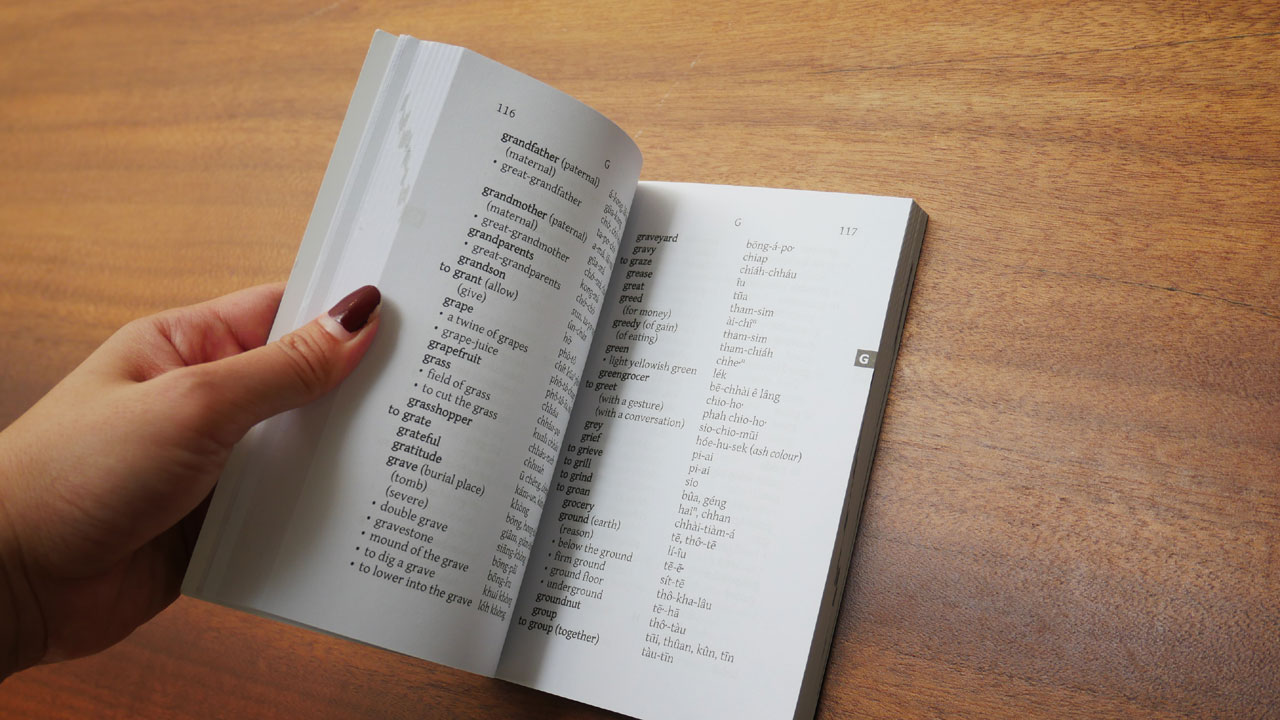 116
G
grandfather (paternal)
(maternal)
• great-grandfather
grandmother (paternal)
(maternal)
• great-grandmother
grandparents
• great-grandparents
grandson
to grant (allow)
(give)
grape
• a twine of grapes
• grape-juice
grapefruit
grass
• field of grass
• to cut the grass
grasshopper
to grate
grateful
gratitude
grave (burial place)
(tomb)
(severe)
• double grave
• gravestone
• mound of the grave
• to dig a grave
• to lower into the grave
G 117
graveyard bōng-á-po͘
gravy chiap
to graze chiáh-chháu
grease îu
great tūa
greed tham-sim
(for money) ài-chîⁿ
greedy (of gain) tham-sim
(of eating) tham-chiáh
green chheⁿ
• light yellowish green lék
greengrocer bē-chhài ê lâng
to greet chio-ho͘
(with a gesture) phah chio-ho͘
(with a conversation) sio-chio-mūi
grey hóe-hu-sek (ash colour)
grief pi-ai
to grieve pi-ai
to grill sio
to grind bûa, géng
to groan haiⁿ, chhan
grocery chhài-tiàm-á
ground (earth) tē, thô͘-tē
(reason) lí-îu
• below the ground tē-ē
• firm ground sít-tē
• ground floor thô͘-kha-lâu
• underground tē-hā
groundnut thô͘-tāu
group tūi, thûan, kûn, tīn
to group (together) tàu-tīn
G